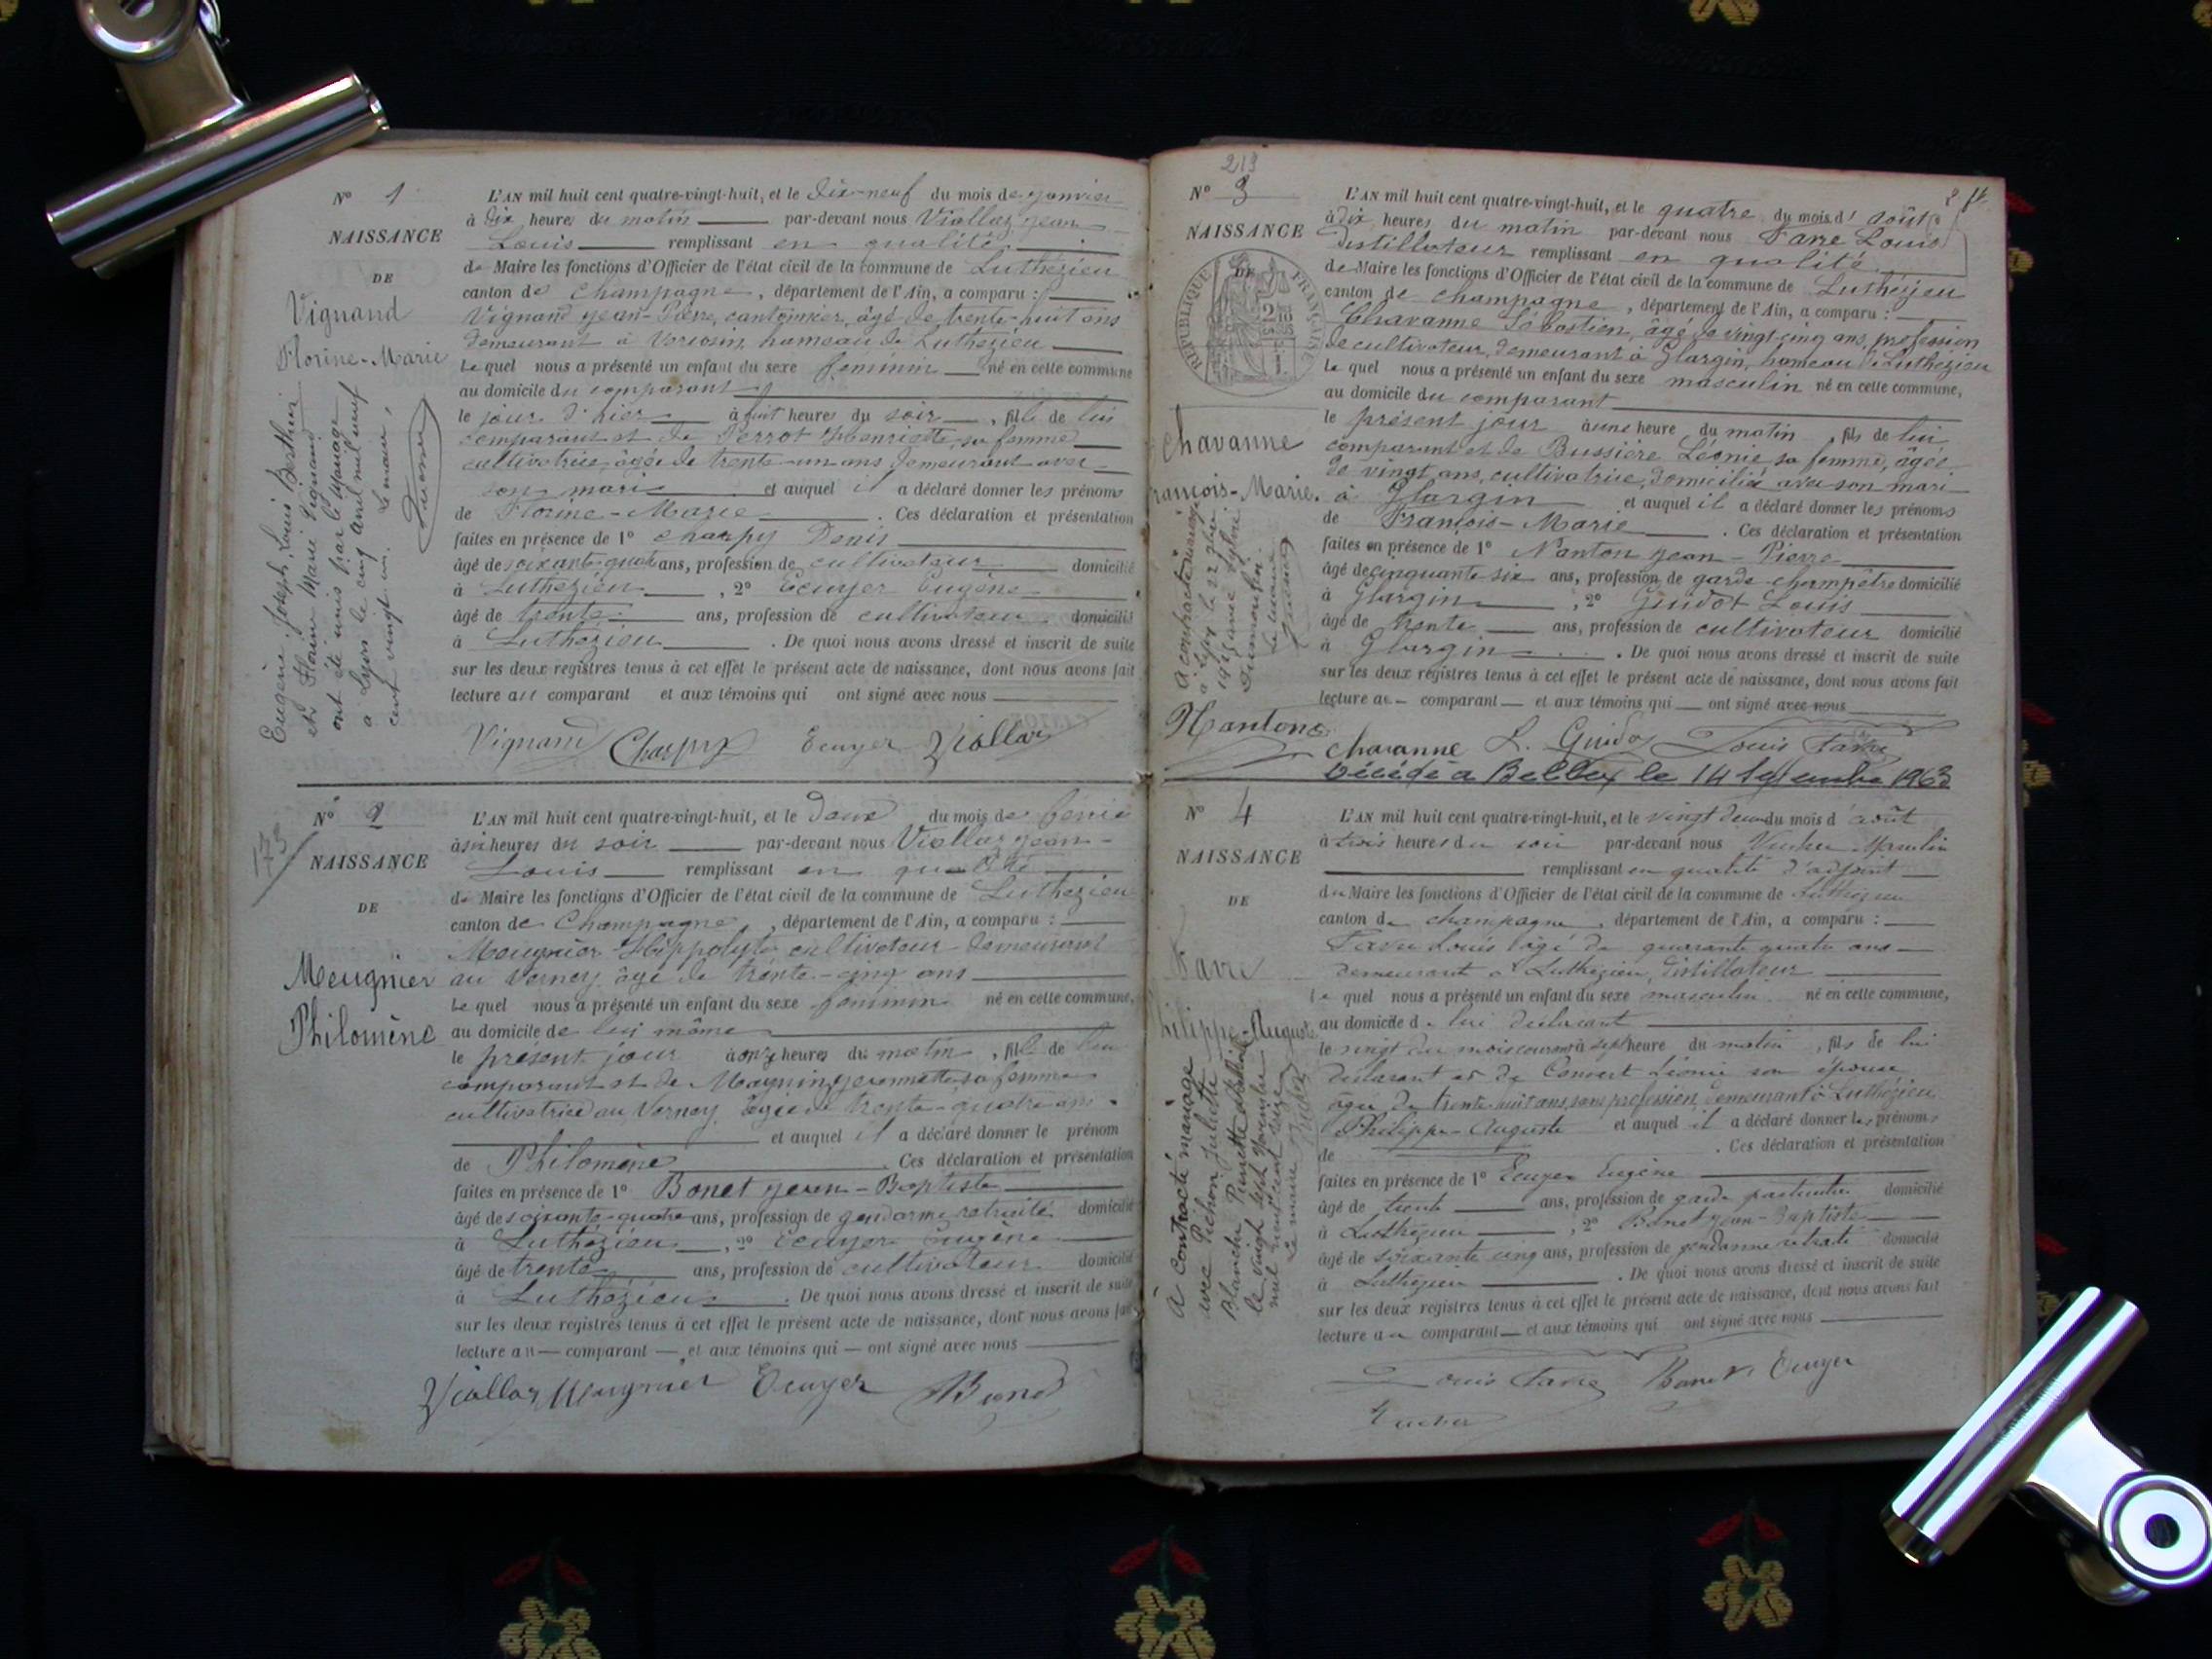 N° 1
NAISSANCE
DE
Vignand
Florine-Marie
Eugène Joseph Louis Berthier
et Florine Marie Vignand
ont été unis par le mariage
à Lyon le cinq avril mil neuf
cent vingt un. Le maire,
L'AN mil huit cent quatre-vingt-huit, et le dix-neuf du mois de janvier
à dix heures du matin par-devant nous Viollaz jean
Louis remplissant en qualité
de Maire les fonctions d'Officier de l'état civil de la commune de Luthézieu
canton de Champagne, département de l'Ain, a comparu :
Vignand jean-Pierre, cantonnier, âgé de trente-huit ans
demeurant à hameau de Luthézieu
Le quel nous a présenté un enfant du sexe féminin né en cette commune
au domicile du comparant
le jour d'hier à huit heures du soir, fille de lui
comparant et de Perrot Henriette sa femme
cultivatrice âgée de trente-un ans demeurant avec
son mari et auquel il a déclaré donner les prénoms
de Florine-Marie. Ces déclaration et présentation
faites en présence de 1° Charpy Denis
âgé de soixante-quatre ans, profession de cultivateur domicilié
à Luthézieu, 2° Ecuyer Eugène
âgé de trente ans, profession de cultivateur domicilié
à Luthézieu. De quoi nous avons dressé et inscrit de suite
sur les deux registres tenus à cet effet le présent acte de naissance, dont nous avons fait
lecture au comparant et aux témoins qui ont signé avec nous
Vignand Charpy Ecuyer Viollaz
N° 2
173
NAISSANCE
DE
Meugnier
Philomène
L'AN mil huit cent quatre-vingt-huit, et le deux du mois de
à six heures du soir par-devant nous Viollaz jean-
Louis remplissant en qualité
de Maire les fonctions d'Officier de l'état civil de la commune de Luthézieu
canton de Champagne, département de l'Ain, a comparu :
Meugnier Hippolyte cultivateur demeurant
au Verney âgé de trente-cinq ans
Le quel nous a présenté un enfant du sexe féminin né en cette commune,
au domicile de lui même
le présent jour à onze heures du matin, fille de lui
comparant et de jeannette sa femme
cultivatrice au Verney âgée de trente-quatre ans.
et auquel il a déclaré donner le prénom
de Philomène. Ces déclaration et présentation
faites en présence de 1° Bonet jean-Baptiste
âgé de soixante-quatre ans, profession de gendarme retraité domicilié
à Luthézieu, 2° Ecuyer Eugène
âgé de trente ans, profession de cultivateur domicilié
à Luthézieu. De quoi nous avons dressé et inscrit de suite
sur les deux registres tenus à cet effet le présent acte de naissance, dont nous avons fait
lecture au comparant, et aux témoins qui ont signé avec nous
Viollaz Meugnier Ecuyer Bonet
213
N° 3
NAISSANCE
DE
RÉPUBLIQUE FRANÇAISE
Chavanne
François-Marie.
A contracté mariage
Le maire
L'AN mil huit cent quatre-vingt-huit, et le quatre du mois d'août
à dix heures du matin par-devant nous Favre Louis
distillateur remplissant en qualité
de Maire les fonctions d'Officier de l'état civil de la commune de Luthézieu
canton de Champagne, département de l'Ain, a comparu :
Chavanne Sébastien, âgé de vingt-cinq ans, profession
de cultivateur, demeurant à Glargin, hameau de Luthézieu
Le quel nous a présenté un enfant du sexe masculin né en cette commune,
au domicile du comparant
le présent jour à une heure du matin, fils de lui
comparant et de Bussière Léonie sa femme, âgée
de vingt ans, cultivatrice, domiciliée avec son mari
à Glargin et auquel il a déclaré donner les prénoms
de François-Marie. Ces déclaration et présentation
faites en présence de 1° Nanton jean-Pierre
âgé de cinquante six ans, profession de garde-champêtre domicilié
à Glargin, 2° Guidot Louis
âgé de trente ans, profession de cultivateur domicilié
à Glargin. De quoi nous avons dressé et inscrit de suite
sur les deux registres tenus à cet effet le présent acte de naissance, dont nous avons fait
lecture au comparant et aux témoins qui ont signé avec nous
Nanton
Chavanne L. Guidot Louis Favre
Décédé à Belley le 14 septembre 1963
N° 4
NAISSANCE
DE
Favre
Philippe-Auguste
A contracté mariage
avec Pichon Juliette
Blanche
le vingt sept Novembre
mil neuf cent
Le maire
L'AN mil huit cent quatre-vingt-huit, et le vingt deux du mois d'août
à trois heures du soir par-devant nous
remplissant en qualité d'adjoint
du Maire les fonctions d'Officier de l'état civil de la commune de Luthézieu
canton de champagne, département de l'Ain, a comparu :
Favre Louis âgé de quarante quatre ans
demeurant à Luthézieu, distillateur
Le quel nous a présenté un enfant du sexe masculin né en cette commune,
au domicile de lui déclarant
le vingt du mois courant à sept heure du matin, fils de lui
déclarant et de Convert Léonie son épouse
âgée de trente-huit ans, sans profession, demeurant à Luthézieu
Philippe-Auguste et auquel il a déclaré donner les prénoms
de. Ces déclaration et présentation
faites en présence de 1° Ecuyer Eugène
âgé de trente ans, profession de garde particulier domicilié
à Luthézieu, 2° Bonet jean-Baptiste
âgé de soixante cinq ans, profession de gendarme retraité domicilié
à Luthézieu. De quoi nous avons dressé et inscrit de suite
sur les deux registres tenus à cet effet le présent acte de naissance, dont nous avons fait
lecture au comparant et aux témoins qui ont signé avec nous
Louis Favre Bonet Ecuyer